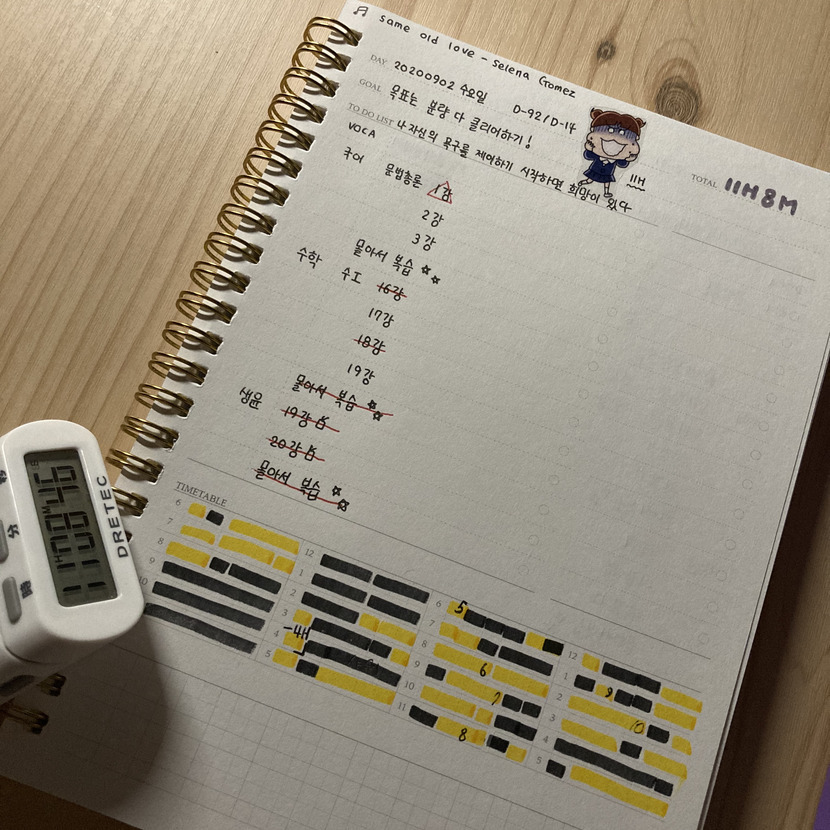 ♫ same old love - Selena Gomez
DAY 20200902 수요일 D-92/D-14
GOAL 목표는 분량 다 클리어하기!
TO DO LIST 나 자신의 욕구를 제어하기 시작하면 희망이 있다
11H
TOTAL 11H 8M
VOCA
국어 문법총론 1강
2강
3강
몰아서 복습 ☆☆
수학 수I 16강
17강
18강
19강
몰아서 복습 ☆☆
생윤 19강
20강
몰아서 복습 ☆☆
TIMETABLE
6
7
8
9
10
12
1
2
3
4 -4H
5
6 5
7
8
9 6
10 7
11 8
12
1 9
2
3 10
4
5
DRETEC
11H08M46
分